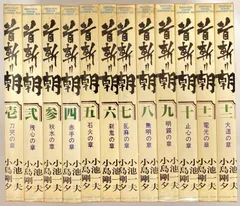 首斬り朝
壱
刀哭の章
小池一夫
小島剛夕
首斬り朝
弐
残心の章
小池一夫
小島剛夕
首斬り朝
参
秋水の章
小池一夫
小島剛夕
首斬り朝
四
赤手の章
小池一夫
小島剛夕
首斬り朝
五
石火の章
小池一夫
小島剛夕
首斬り朝
六
の章
小池一夫
小島剛夕
首斬り朝
七
乱麻の章
小池一夫
小島剛夕
首斬り朝
八
無明の章
小池一夫
小島剛夕
首斬り朝
九
明鏡の章
小池一夫
小島剛夕
首斬り朝
十
止心の章
小池一夫
小島剛夕
首斬り朝
十一
電光の章
小池一夫
小島剛夕
首斬り朝
十二
大道の章
小池一夫
小島剛夕